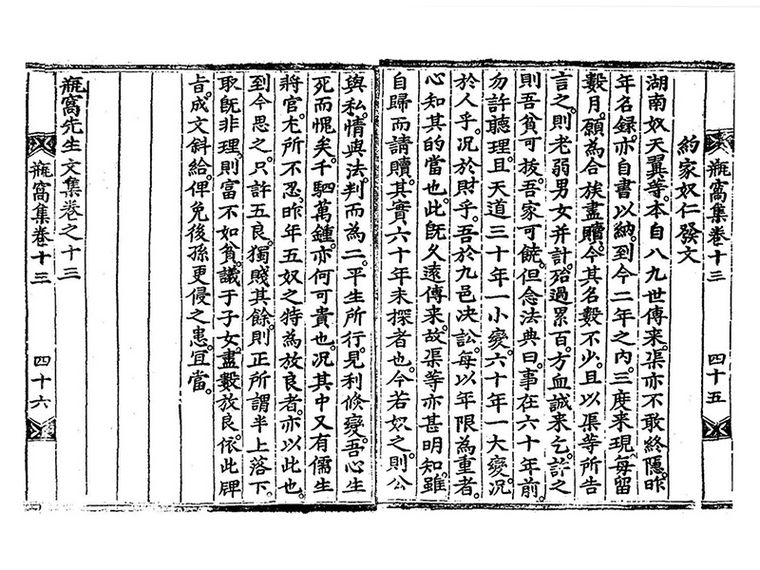 瓶窩集卷十三 四十五
約家奴仁發文
湖南奴天翼等。本自八九世傳来。渠亦不敢終隱。昨
年名録。亦自書以納。到今二年之内。三度来現。每留
數月。願為合族盡贖。今其名數不少。且以渠等所告
言之。則老弱男女并計。殆過累百。方血誠来乞。許之
則吾貧可拔。吾家可饒。但念法典曰。事在六十年前。
勿許聽理。且天道三十年一小變。六十年一大變。况
於人乎。况於財乎。吾於九邑决訟。每以年限為重者。
心知其的當也。此既久遠傳来。故渠等亦甚明知。雖
自歸而請贖。其實六十年未探者也。今若奴之則公
與私。情與法。判而為二。平生所行。見利倏變。吾心生
死而愧矣。千駟萬鍾。亦何可貴也。况其中又有儒生
將官。尤所不忍。昨年五奴之特為放良者。亦以此也。
到今思之。只許五良。獨賤其餘。則正所謂半上落下。
取既非理。則富不如貧。議于子女。盡數放良。依此牌
旨成文斜給。俾免後孫更侵之患。宜當。
瓶窩先生文集卷之十三
瓶窩集卷十三 四十六